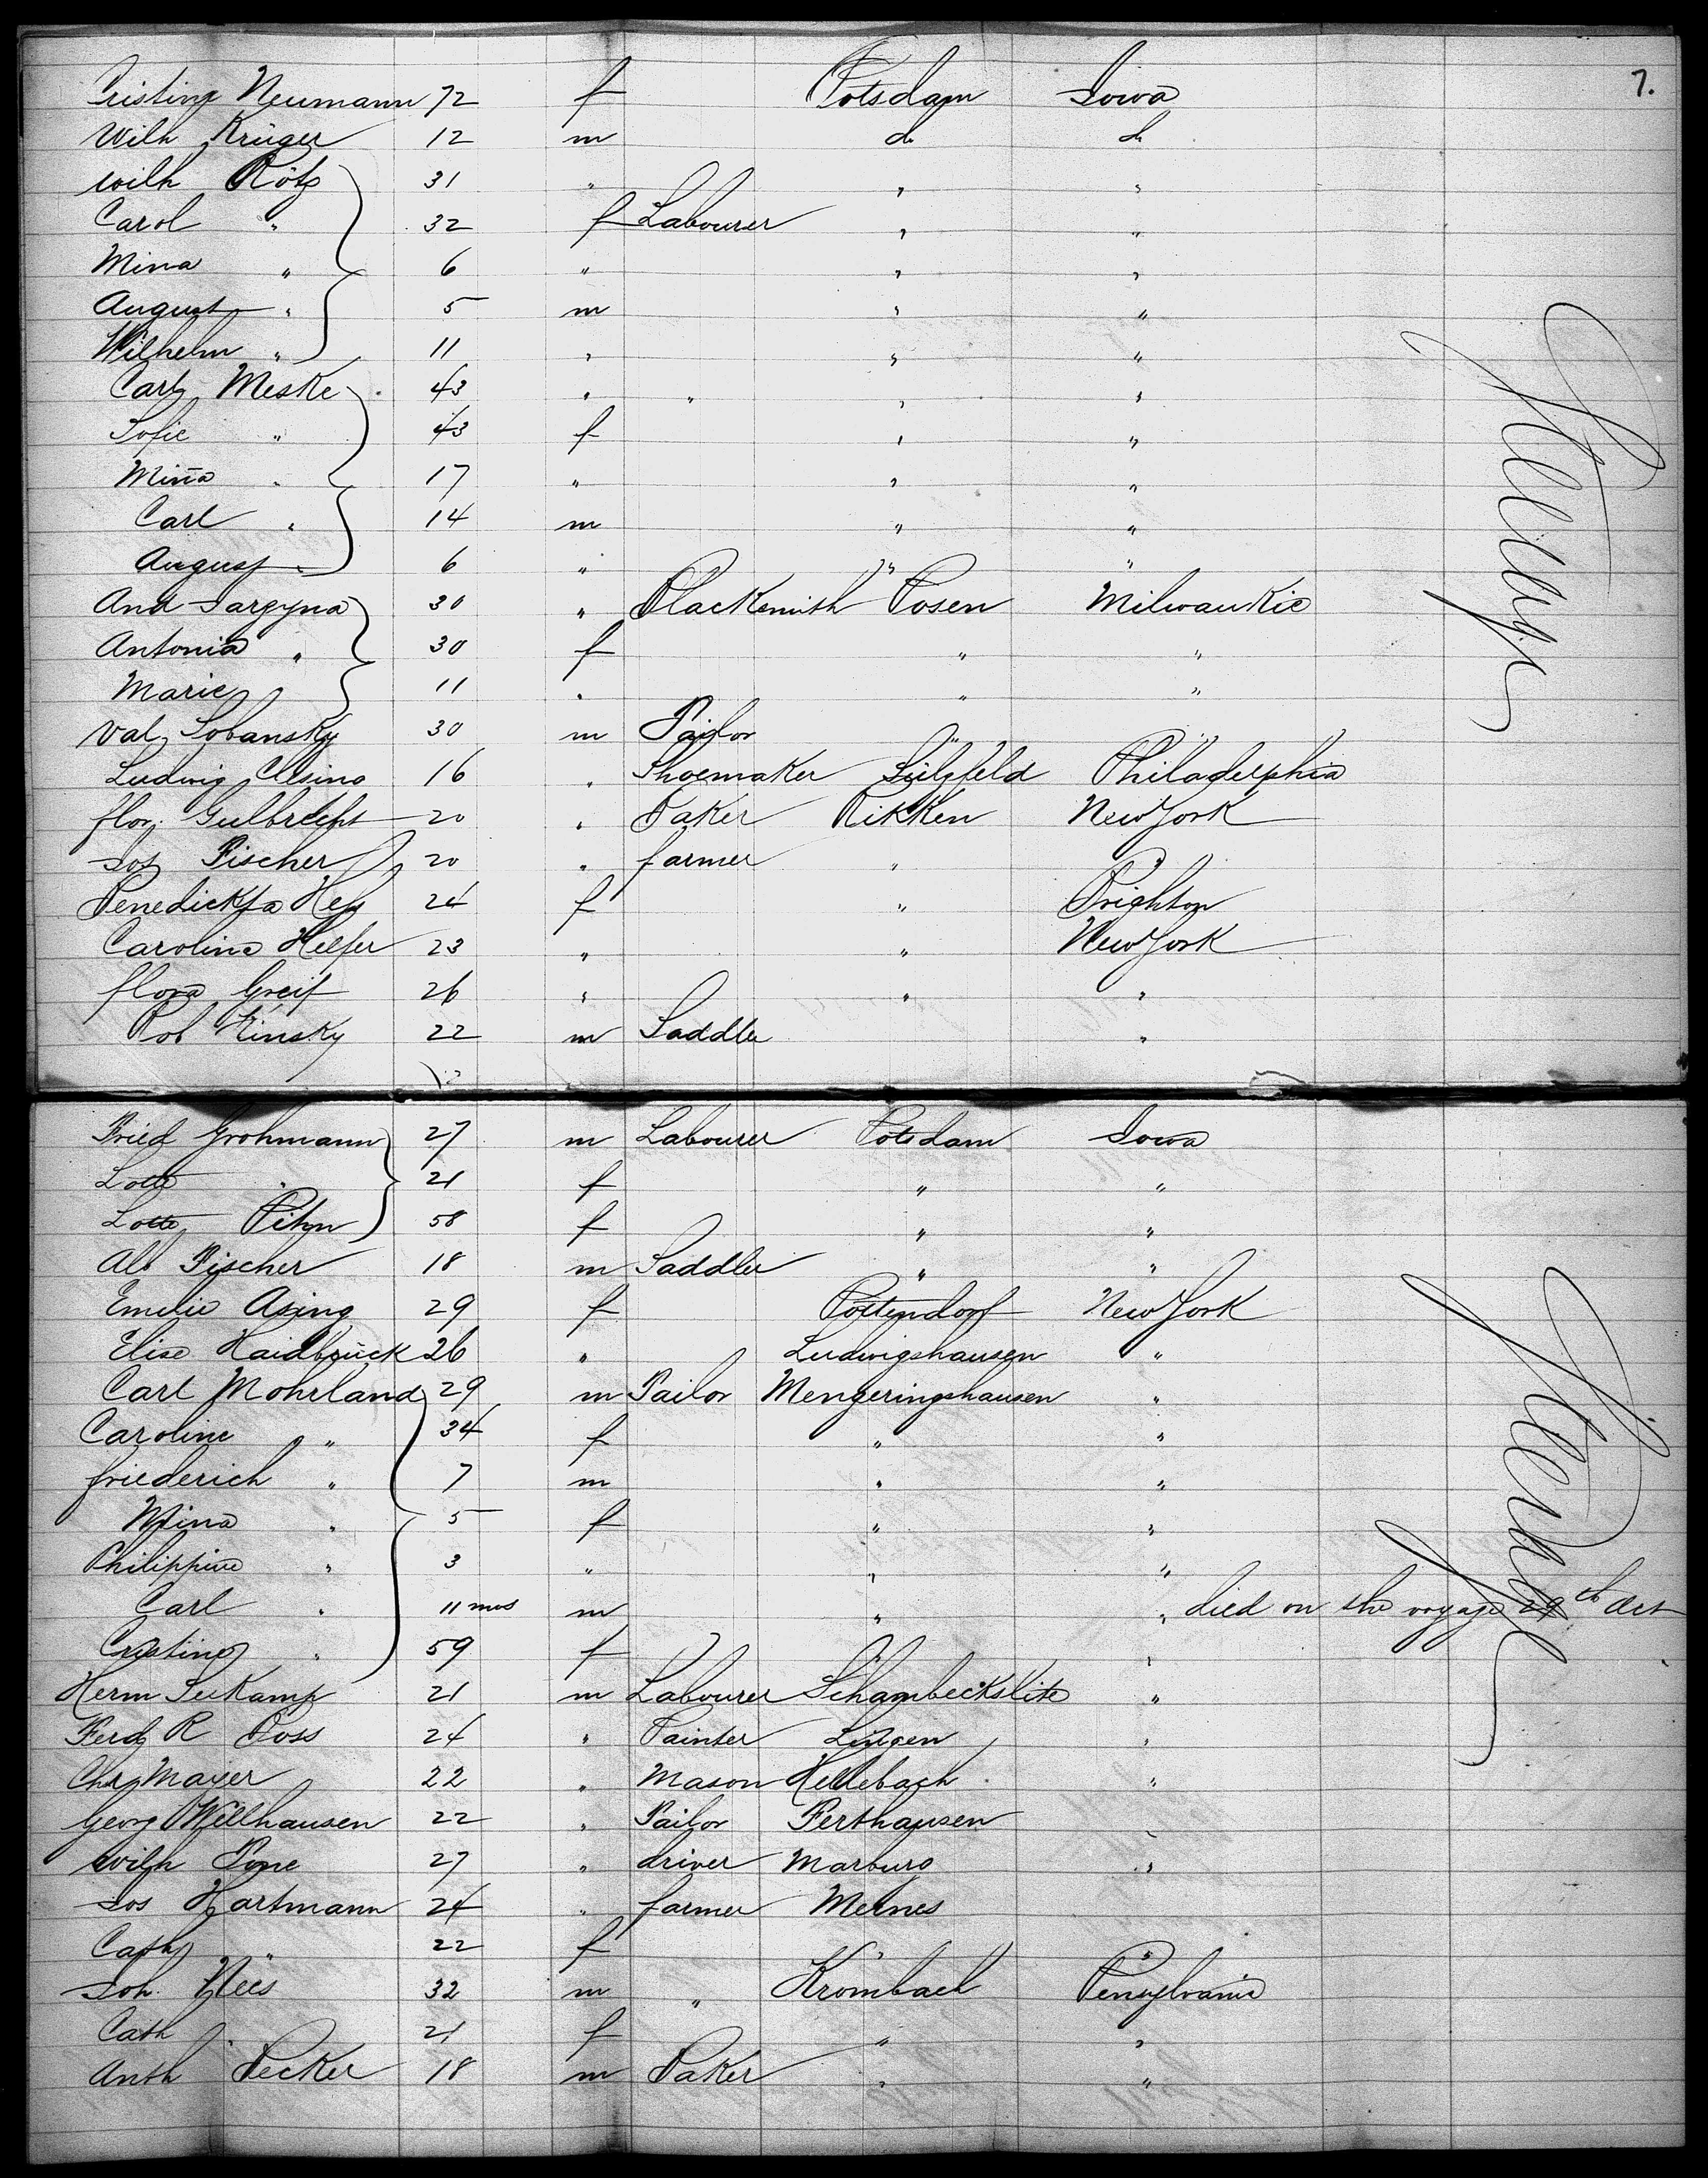 7.
Cristine Neumann 72 f Potsdam Iowa
Wilh Krüger 12 m do do
Wilh Rötz 31 " " "
Carol " 32 f Labourer " "
Mina " 6 " " "
August " 5 m " "
Wilhelm " 11 " " "
Carl Meske 43 " " " "
Sofie " 43 f " "
Mina " 17 " " "
Carl " 14 m " "
August " 6 " " "
And 30 " Blacksmith Posen Milwaukie
Antonia " 30 f " "
Marie " 11 " " "
Val Sobansky 30 m Tailor " "
Ludwig 16 " Shoemaker Sülzfeld Philadelphia
flor. 20 " Baker Rikken New York
Jos Fischer 20 " farmer " "
Benedickta 24 f " Brighton
Caroline Helfer 23 " " New York
flora Greif 26 " " "
Rob Kinsky 22 m Saddler "
Steerage
Fried Grohmann 27 m Labourer Potsdam Iowa
Lotte " 21 f " "
Lotte 58 f " "
Alb Fischer 18 m Saddler " "
Emilie Asing 29 f Pottendorf New York
Elise Haidbrück 26 " Ludwigshausen "
Carl Mohrland 29 m Tailor Mengeringshausen "
Caroline " 34 f " "
friederich " 7 m " "
Mina " 5 f " "
Philippine " 3 " " "
Carl " 11 mos m " " died on the voyage 29th Oct
Cristine " 59 f " "
Herm Seekamp 21 m Labourer "
Ferd R Voss 24 " Painter Lingen "
Chr Mayer 22 " Mason "
Georg Wellhausen 22 " Tailor "
Wilh 27 " driver Marburg "
Jos Hartmann 24 " farmer
Cath " 22 f " "
Joh. Nees 32 m " Krombach Pensylvania
Cath " 21 f " "
Anth Becker 18 m Baker " "
Steerage